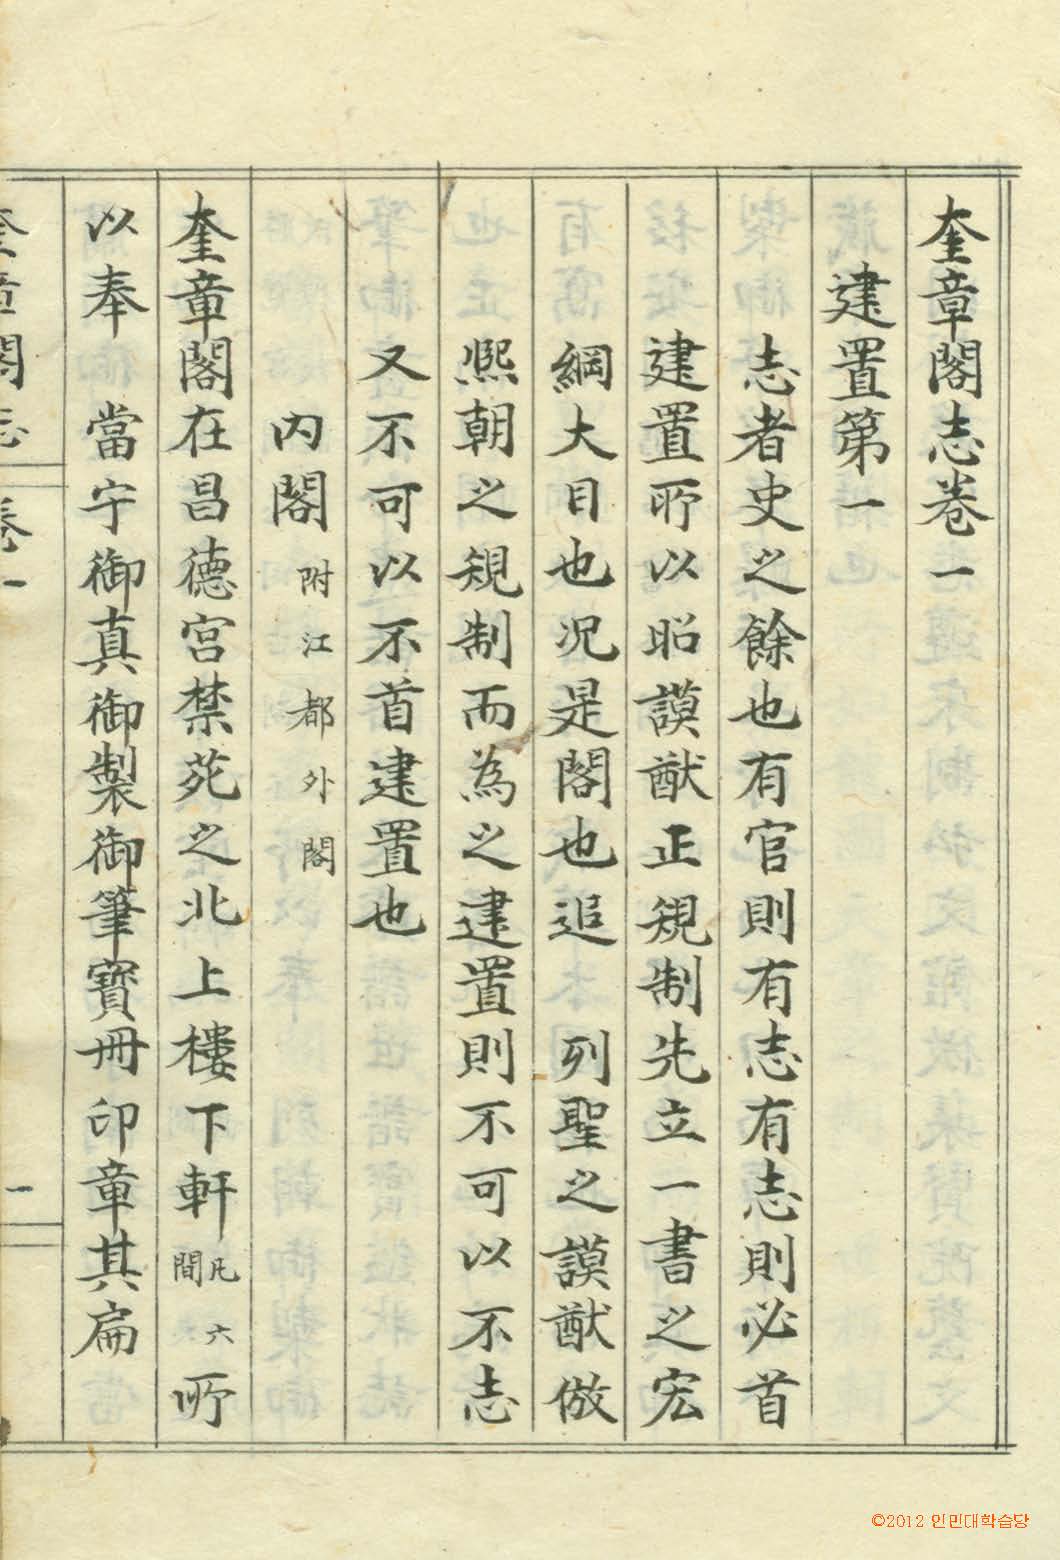 奎章閣志卷一
建置第一
志者史之餘也有官則有志有志則必首
建置所以昭謨猷正規制先立一書之宏
綱大目也况是閣也追 列聖之謨猷倣
熙朝之規制而為之建置則不可以不志
又不可以不首建置也
內閣 附江都外閣
奎章閣在昌德宮禁苑之北上樓下軒凡六間所
以奉 當宁御真御製御筆寶冊印章其扁
奎章閣志 卷一 一
©2012 인민대학습당